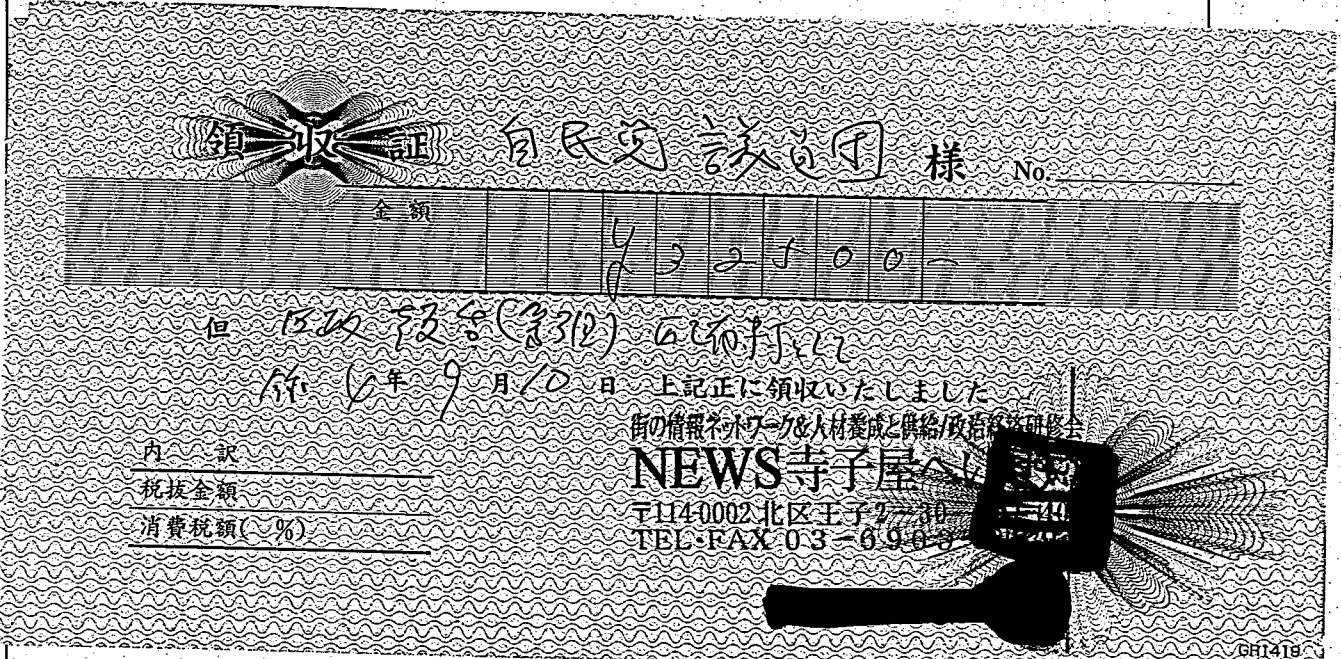 領収証 自民党 議員団 様 No.
金額 ¥32500-
但 区政報告(第3回) 配布代として
4年 9月10日 上記正に領収いたしました
街の情報ネットワーク&人材養成と供給/政治経済研修会
NEWS寺子屋
内 訳
〒114-0002 北区王子2-30
税抜金額
TEL・FAX 03-6903
消費税額( %)
GR1419